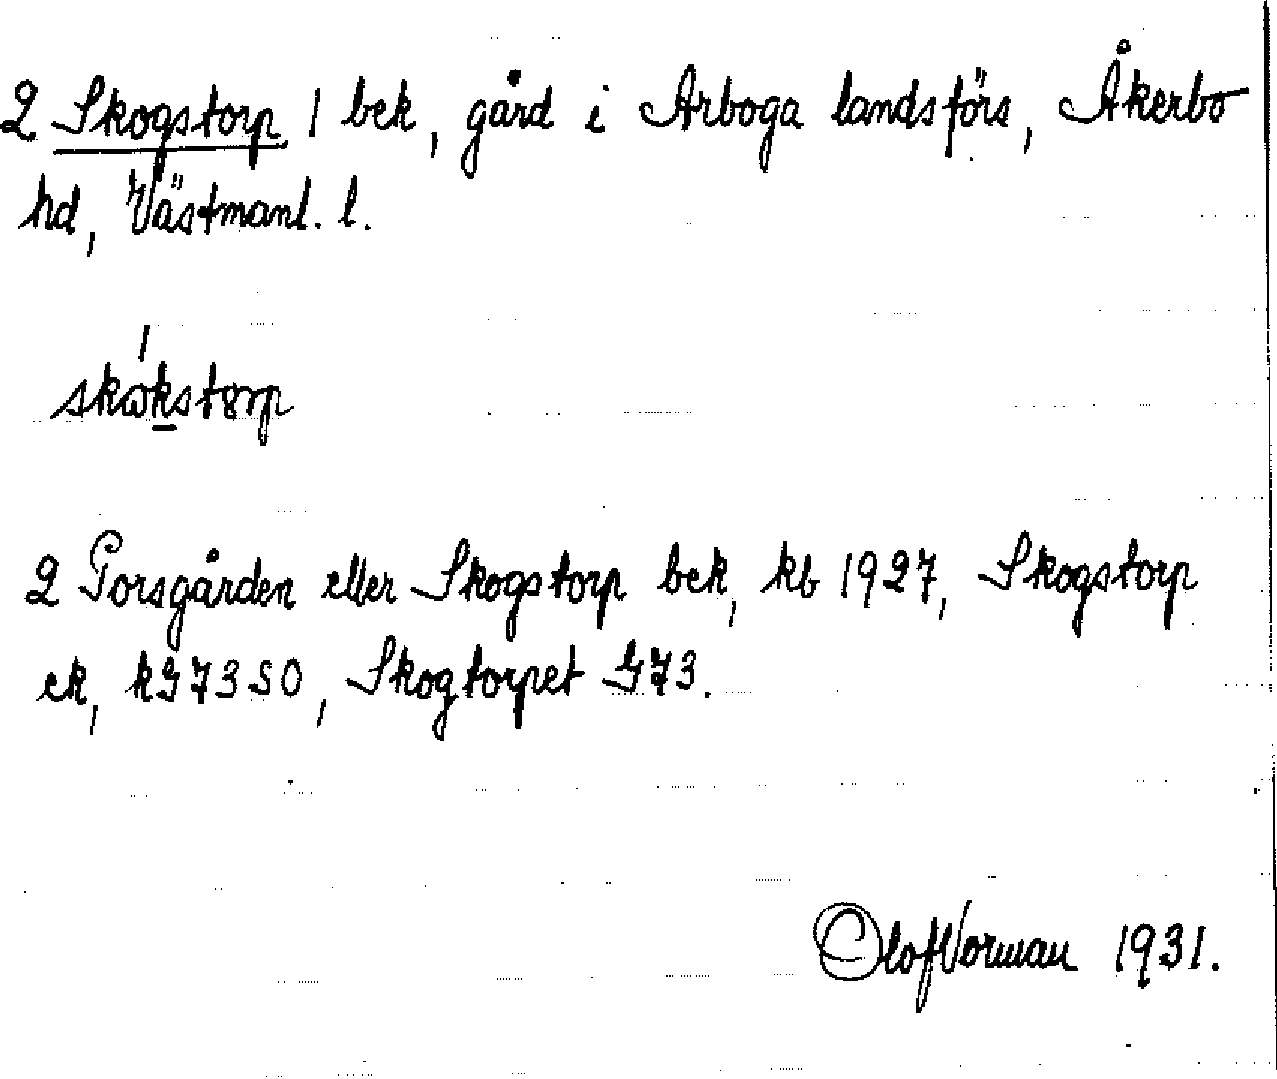 2 Skogstorp 1 bek, gård i Arboga landsförs, Åkerbo
hd, Västmanl. l.
skωkstȣrp
2 Porsgården eller Skogstorp bek, kb 1927, Skogstorp
ek, kG7350, Skogtorpet G73.
Olof Vorman 1931.